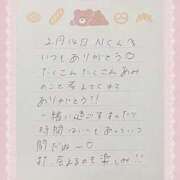 2月14日 Nくんへ
いつもありがとう♡
たくさんたくさんあみ
のこと考えてくれて
ありがとう!!
一緒に過ごすったり
時間はいつもあっという
間だね〜
打、会えるのを楽しみ!!